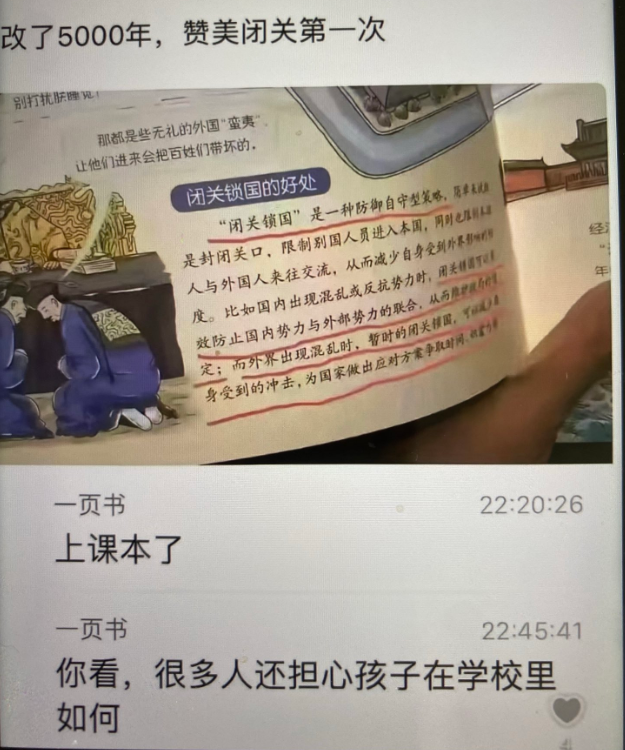 改了5000年，赞美闭关第一次
别打扰朕睡觉！
那都是些无礼的外国“蛮夷”，
让他们进来会把百姓们带坏的。
闭关锁国的好处
“闭关锁国”是一种防御自守型策略，简单来说就
是封闭关口，限制别国人员进入本国，同时也限制本国
人与外国人来往交流，从而减少自身受到外界影响的程
度。比如国内出现混乱或反抗势力时，闭关锁国可以有
效防止国内势力与外部势力的联合，从而维护政局的稳
定；而外界出现混乱时，暂时的闭关锁国，可以减少自
身受到的冲击，为国家做出应对方案争取时间
经
年
一页书
22:20:26
上课本了
一页书
22:45:41
你看，很多人还担心孩子在学校里
如何